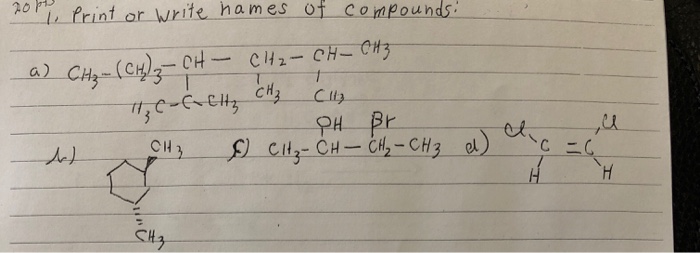 20 pts 1. Print or write names of compounds:
a) CH3-(CH2)3-CH - CH2-CH-CH3
H3C-C-CH3 CH3 CH3
OH Br
b) CH3 c) CH3-CH-CH2-CH3 d) Cl C=C Cl
H H
CH3